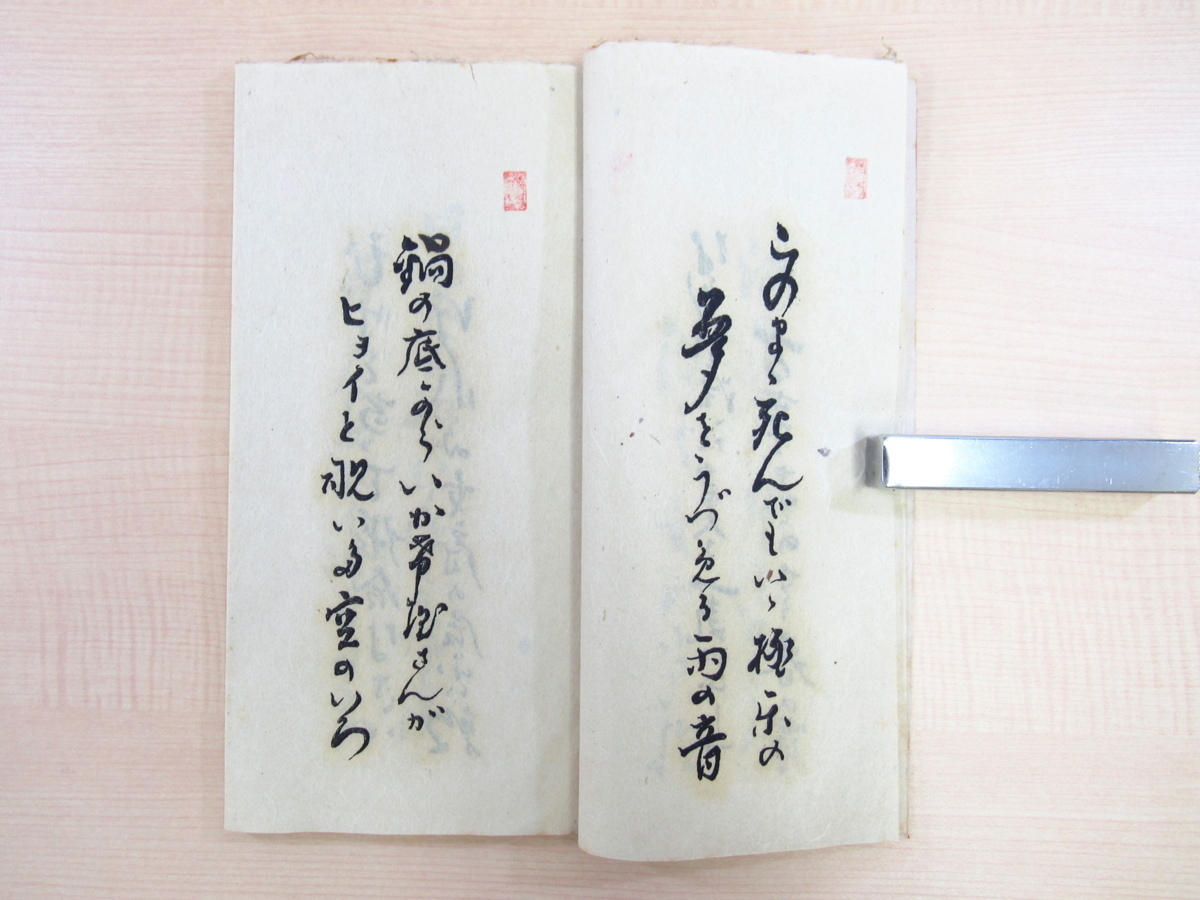 このまゝ死んでもいゝ極楽の
夢をうづめる雨の音
鍋の底からいかけ屋さんが
ヒョイと覗いた空のいろ